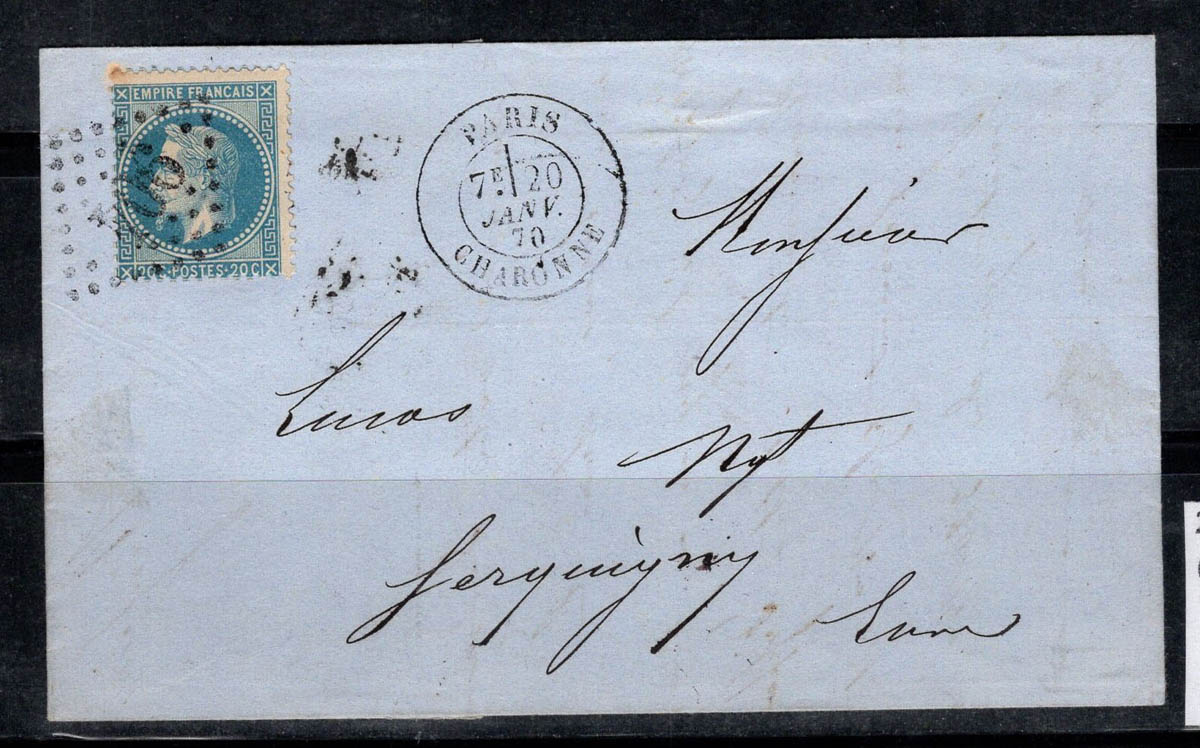 EMPIRE FRANCAIS
20C·POSTES·20C
PARIS
7E 20
JANV.
70
CHARONNE
Monsieur
Lucas
Ngt
Serquigny
Eure